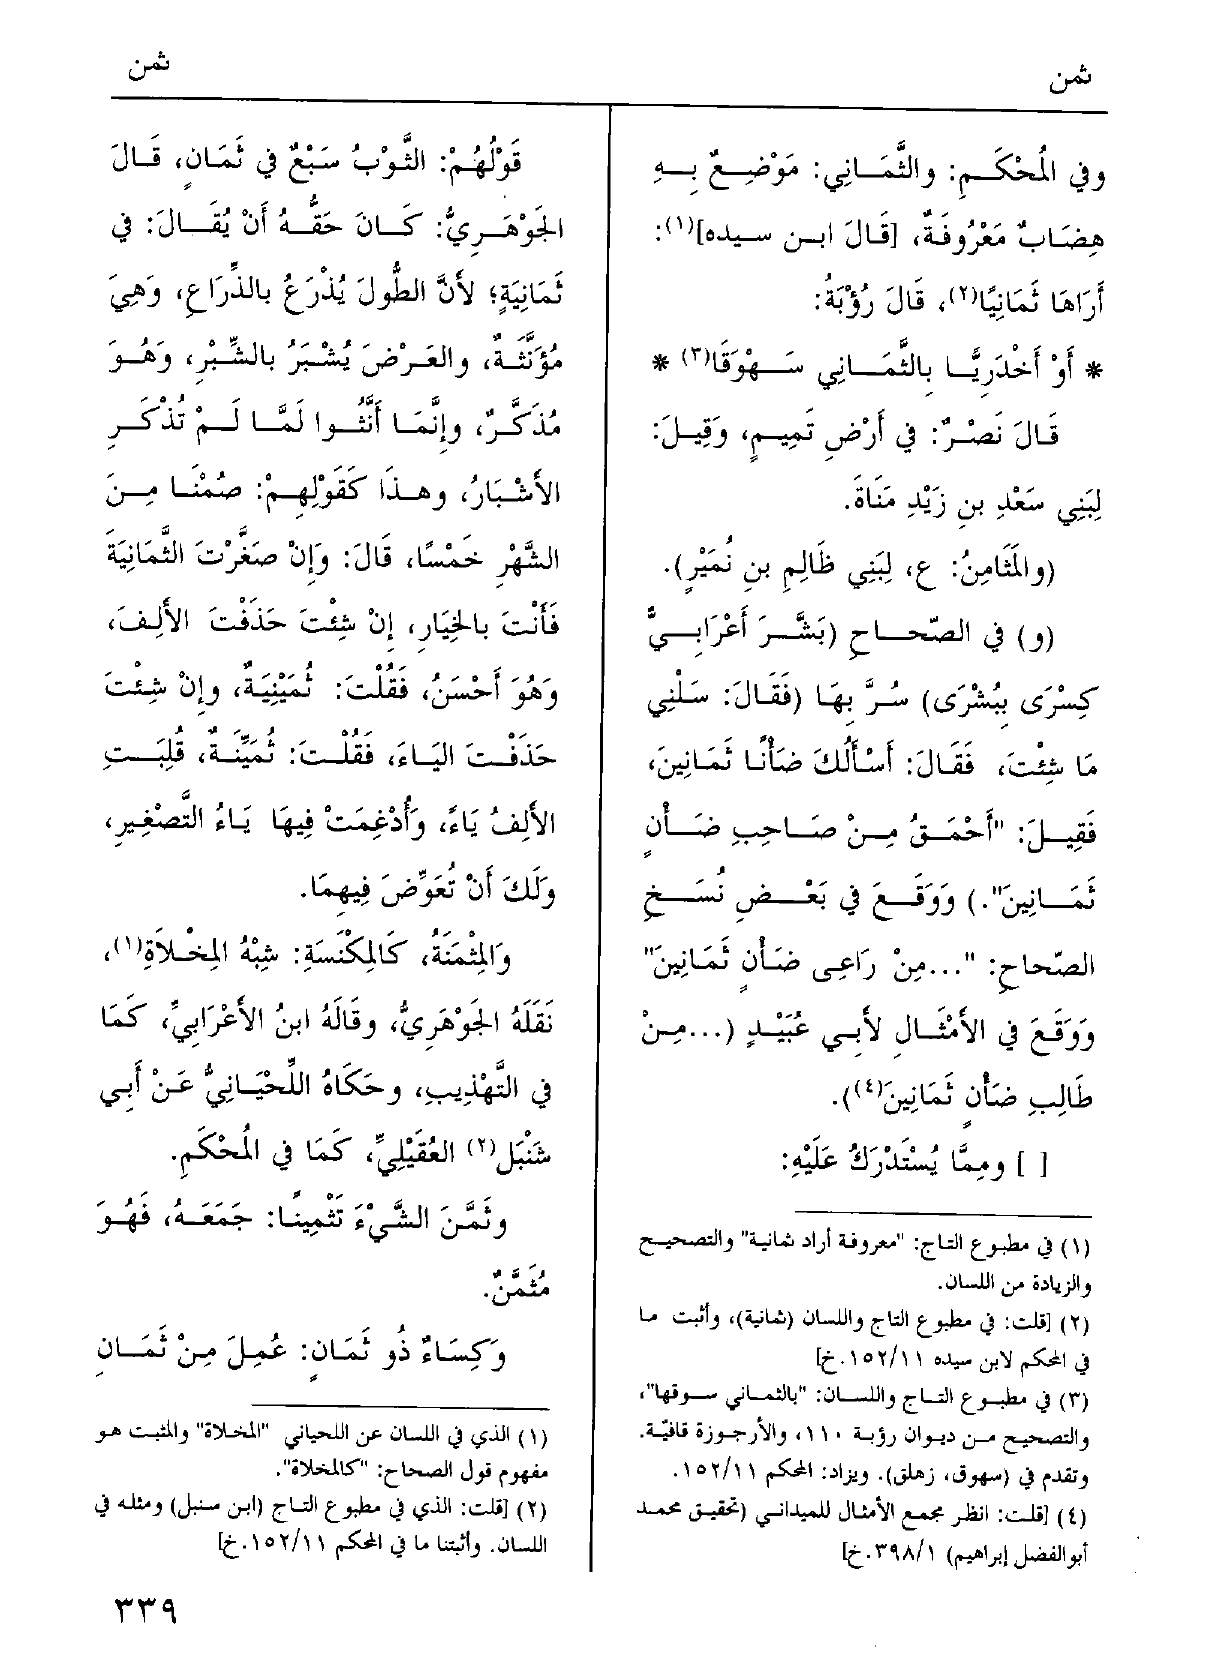 ثمن
ثمن
وفي المُحْكَمِ: والثَّمَانِي: مَوْضِعٌ بِهِ
هِضَابٌ مَعْرُوفَةٌ، [قَالَ ابن سيده](١):
أَرَاهَا ثَمَانِيًا(٢)، قَالَ رُؤْبَةُ:
* أَوْ أَخْدَرِيًّا بِالثَّمَانِي سَهْوَقَا(٣) *
قَالَ نَصْرٌ: فِي أَرْضِ تَمِيمٍ، وَقِيلَ:
لِبَنِي سَعْدِ بنِ زَيْدِ مَنَاةَ.
(والمَثَامِنُ: ع، لِبَنِي ظَالِمِ بنِ نُمَيْرٍ).
(و) فِي الصّحاحِ (بَشَّرَ أَعْرَابِيٌّ
كِسْرَى بِبُشْرَى) سُرَّ بِهَا (فَقَالَ: سَلْنِي
مَا شِئْتَ، فَقَالَ: أَسْأَلُكَ ضَأْنًا ثَمَانِينَ،
فَقِيلَ: "أَحْمَقُ مِنْ صَاحِبِ ضَأْنٍ
ثَمَانِينَ".) وَوَقَعَ فِي بَعْضِ نُسَخِ
الصّحاحِ: "...مِنْ رَاعِى ضَأْنٍ ثَمَانِينَ"
وَوَقَعَ فِي الأَمْثَالِ لأَبِي عُبَيْدٍ (...مِنْ
طَالِبِ ضَأْنٍ ثَمَانِينَ(٤)).
[ ] ومِمَّا يُسْتَدْرَكُ عَلَيْهِ:
(١) في مطبوع التاج: "معروفة أراد ثمانية" والتصحيح
والزيادة من اللسان.
(٢) [قلت: في مطبوع التاج واللسان (ثمانية)، وأثبت ما
في المحكم لابن سيده ١٥٢/١١.خ]
(٣) في مطبوع التاج واللسان: "بالثماني سوقها"،
والتصحيح من ديوان رؤبة ١١٠، والأرجوزة قافيّة.
وتقدم في (سهوق، زهلق). ويزاد: المحكم ١٥٢/١١.
(٤) [قلت: انظر مجمع الأمثال للميداني (تحقيق محمد
أبوالفضل إبراهيم) ٣٩٨/١.خ]
قَوْلُهُمْ: الثَّوْبُ سَبْعٌ فِي ثَمَانٍ، قَالَ
الجَوْهَرِيُّ: كَانَ حَقُّهُ أَنْ يُقَالَ: فِي
ثَمَانِيَةٍ؛ لأَنَّ الطُّولَ يُذْرَعُ بالذِّرَاعِ، وَهِيَ
مُؤَنَّثَةٌ، والعَرْضَ يُشْبَرُ بالشِّبْرِ، وَهُوَ
مُذَكَّرٌ، وإِنَّمَا أَنَّثُوا لَمَّا لَمْ تُذْكَرِ
الأَشْبَارُ، وهذَا كَقَوْلِهِمْ: صُمْنَا مِنَ
الشَّهْرِ خَمْسًا، قَالَ: وَإِنْ صَغَّرْتَ الثَّمَانِيَةَ
فَأَنْتَ بالخِيَارِ، إِنْ شِئْتَ حَذَفْتَ الأَلِفَ،
وَهُوَ أَحْسَنُ، فَقُلْتَ: ثُمَيْنِيَةٌ، وإِنْ شِئْتَ
حَذَفْتَ اليَاءَ، فَقُلْتَ: ثُمَيِّنَةٌ، قُلِبَتِ
الأَلِفُ يَاءً، وَأُدْغِمَتْ فِيهَا يَاءُ التَّصْغِيرِ،
وَلَكَ أَنْ تُعَوِّضَ فِيهِمَا.
وَالمِثْمَنَةُ، كَالمِكْنَسَةِ: شِبْهُ المِخْلاَةِ(١)،
نَقَلَهُ الجَوْهَرِيُّ، وقَالَهُ ابنُ الأَعْرَابِيِّ، كَمَا
فِي التَّهْذِيبِ، وحَكَاهُ اللِّحْيَانِيُّ عَنْ أَبِي
شَنْبَلٍ(٢) العُقَيْلِيِّ، كَمَا فِي المُحْكَمِ.
وثَمَّنَ الشَّيْءَ تَثْمِينًا: جَمَعَهُ، فَهُوَ
مُثَمَّنٌ.
وَكِسَاءٌ ذُو ثَمَانٍ: عُمِلَ مِنْ ثَمَانِ
(١) الذي في اللسان عن اللحياني "المخلاة" والمثبت هو
مفهوم قول الصحاح: "كالمخلاة".
(٢) [قلت: الذي في مطبوع التاج (ابن سنبل) ومثله في
اللسان. وأثبتنا ما في المحكم ١٥٢/١١.خ]
٣٣٩